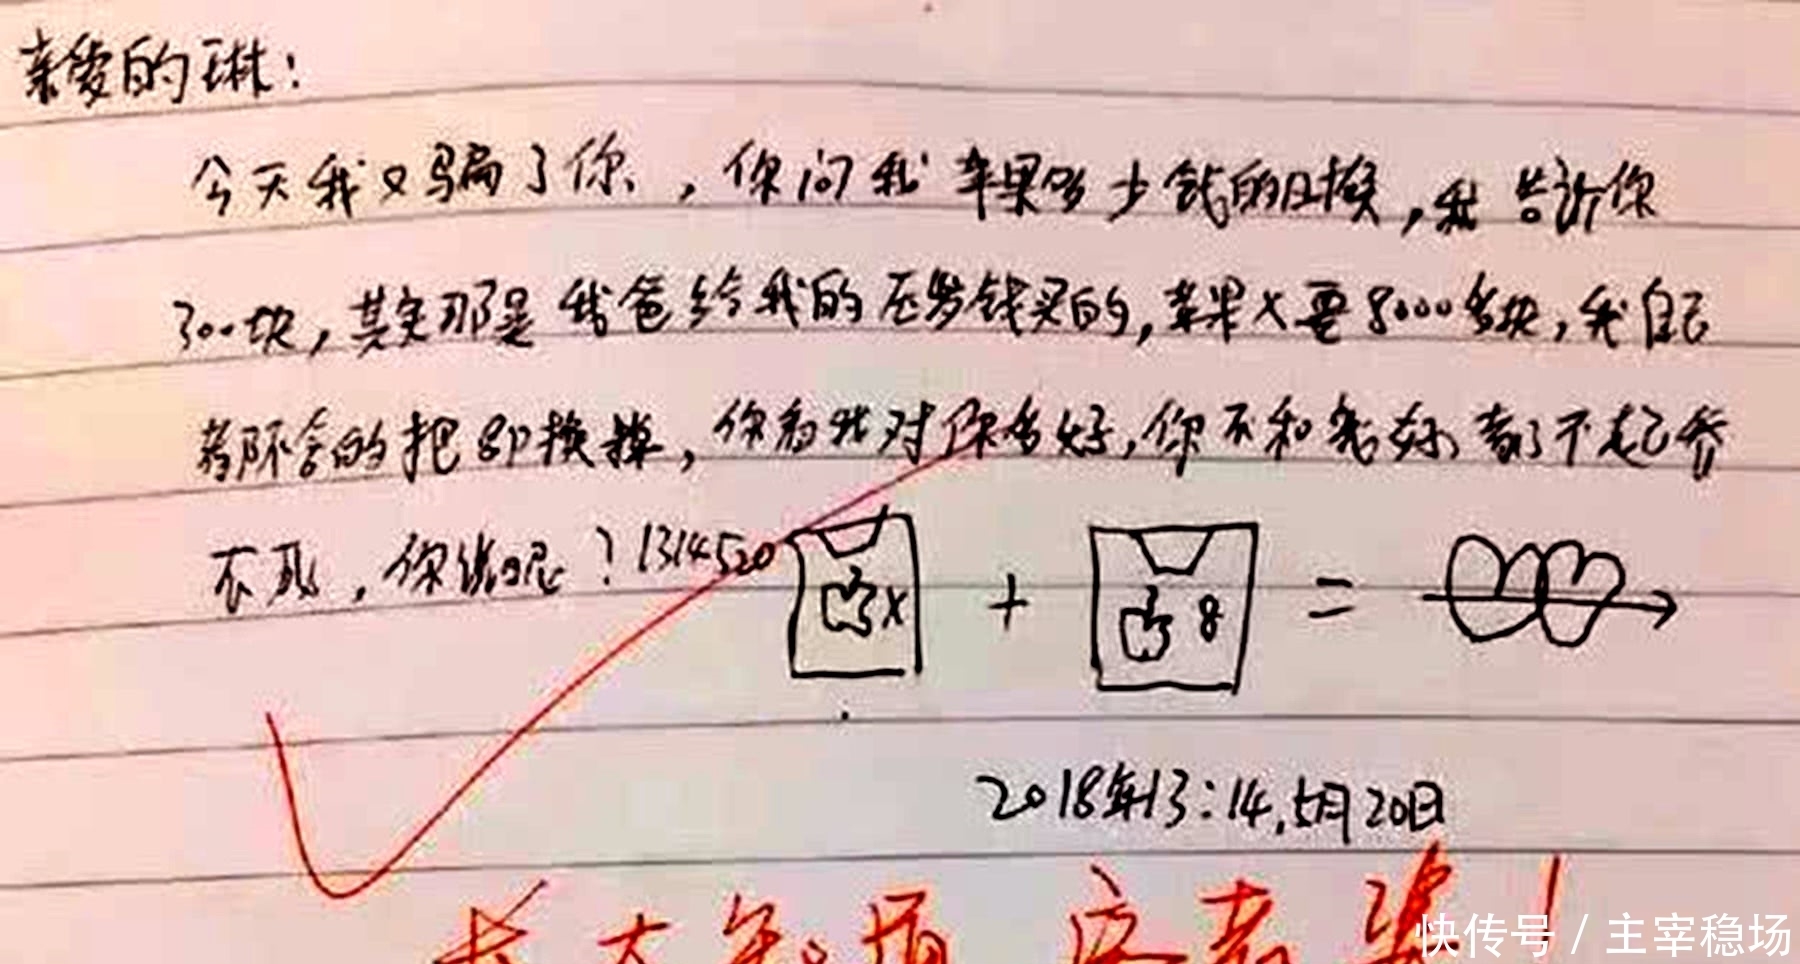 亲爱的琳：
今天我又骗了你，你问我苹果多少钱的，我告诉你
300块，其实那是我爸给我的压岁钱买的，苹果X要8000多块，我自己
都不舍的把8P换掉，你看我对你多好，你不和我好，都对不起乔
不死，你说呢？1314520 X + 8 =
2018年13:14,5月20日
!
快传号 / 主宰稳场